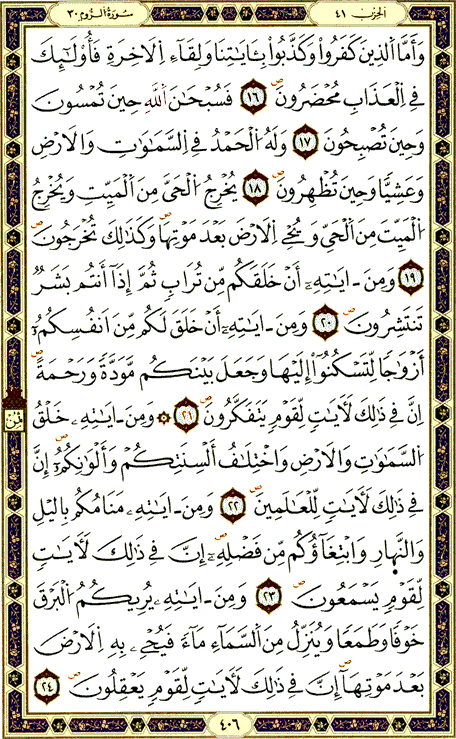 سُورَةُ الرُّومِ ٣٠ الحِزْب ٤١
وَأَمَّا اَلذِينَ كَفَرُواْ وَكَذَّبُواْ بِـَٔايَٰتِنَا وَلِقَآءِ اِ۬لَاخِرَةِ فَأُوْلَٰٓئِكَ
فِے اِ۬لْعَذَابِ مُحْضَرُونَۖ ١٦ فَسُبْحَٰنَ اَ۬للَّهِ حِينَ تُمْسُونَ
وَحِينَ تُصْبِحُونَۖ ١٧ وَلَهُ اُ۬لْحَمْدُ فِے اِ۬لسَّمَٰوَٰتِ وَالَارْضِ
وَعَشِيّاٗ وَحِينَ تُظْهِرُونَۖ ١٨ يُخْرِجُ اُ۬لْحَيَّ مِنَ اَ۬لْمَيِّتِ وَيُخْرِجُ
اُ۬لْمَيِّتَ مِنَ اَ۬لْحَيِّ وَيُحْيِ اِ۬لَارْضَ بَعْدَ مَوْتِهَاۖ وَكَذَٰلِكَ تُخْرَجُونَۖ
١٩ وَمِنَ اٰيَٰتِهِۦٓ أَنْ خَلَقَكُم مِّن تُرَابٖ ثُمَّ إِذَآ أَنتُم بَشَرٞ
تَنتَشِرُونَۖ ٢٠ وَمِنَ اٰيَٰتِهِۦٓ أَنْ خَلَقَ لَكُم مِّنَ اَنفُسِكُمُۥٓ
أَزْوَٰجاٗ لِّتَسْكُنُوٓاْ إِلَيْهَا وَجَعَلَ بَيْنَكُم مَّوَدَّةٗ وَرَحْمَةًۖ
اِنَّ فِے ذَٰلِكَ لَأٓيَٰتٖ لِّقَوْمٖ يَتَفَكَّرُونَۖ ٢١ ۞ وَمِنَ اٰيَٰتِهِۦ خَلْقُ
ثمن
اُ۬لسَّمَٰوَٰتِ وَالَارْضِ وَاخْتِلَٰفُ أَلْسِنَتِكُمْ وَأَلْوَٰنِكُمُۥٓۖ إِنَّ
فِے ذَٰلِكَ لَأٓيَٰتٖ لِّلْعَٰلَمِينَۖ ٢٢ وَمِنَ اٰيَٰتِهِۦ مَنَامُكُم بِاليْلِ
وَالنَّهارِ وَابْتِغَآؤُكُم مِّن فَضْلِهِۦٓۖ إِنَّ فِے ذَٰلِكَ لَأٓيَٰتٖ
لِّقَوْمٖ يَسْمَعُونَۖ ٢٣ وَمِنَ اٰيَٰتِهِۦ يُرِيكُمُ اُ۬لْبَرْقَ
خَوْفاٗ وَطَمَعاٗ وَيُنَزِّلُ مِنَ اَ۬لسَّمَآءِ مَآءٗ فَيُحْيِۦ بِهِ اِ۬لَارْضَ
بَعْدَ مَوْتِهَآۖ إِنَّ فِے ذَٰلِكَ لَأٓيَٰتٖ لِّقَوْمٖ يَعْقِلُونَۖ ٢٤
٤٠٦